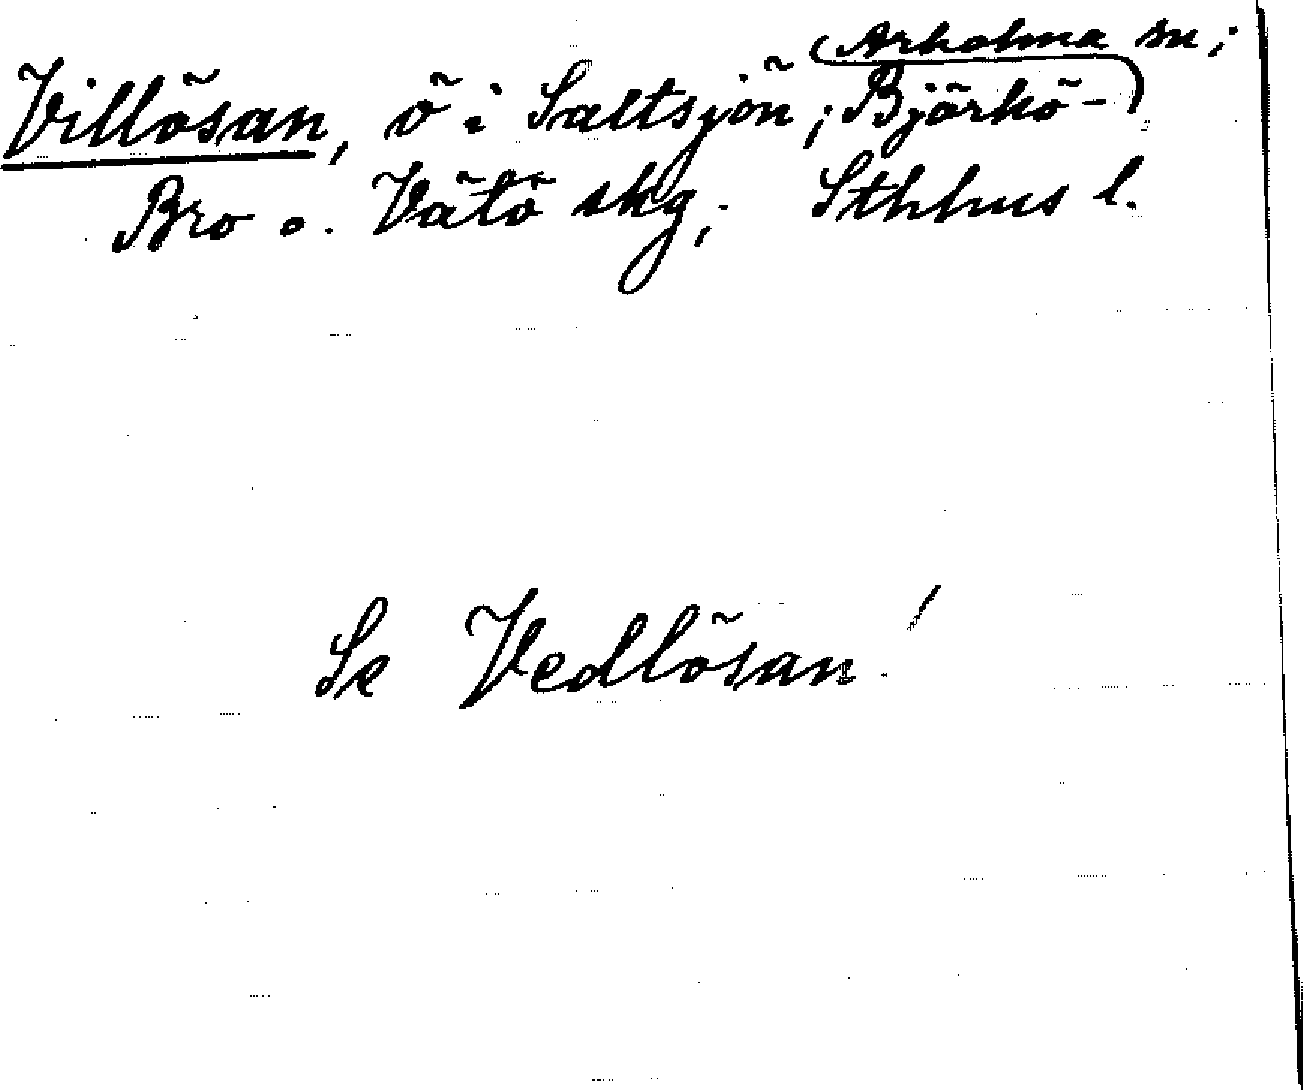 Villösan, ö i Saltsjön; Björkö-
Arholma sn;
Bro o. Vätö skg; Sthhus l.
Se Vedlösan!